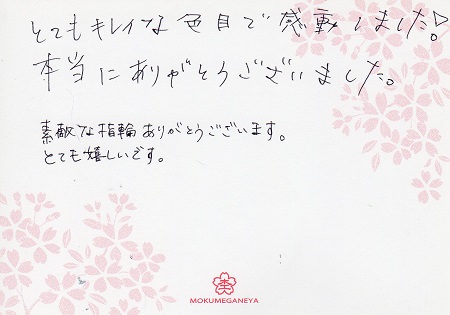 とてもキレイな色目で感動しました!
本当にありがとうございました。
素敵な指輪ありがとうございます。
とても嬉しいです。
MOKUMEGANEYA